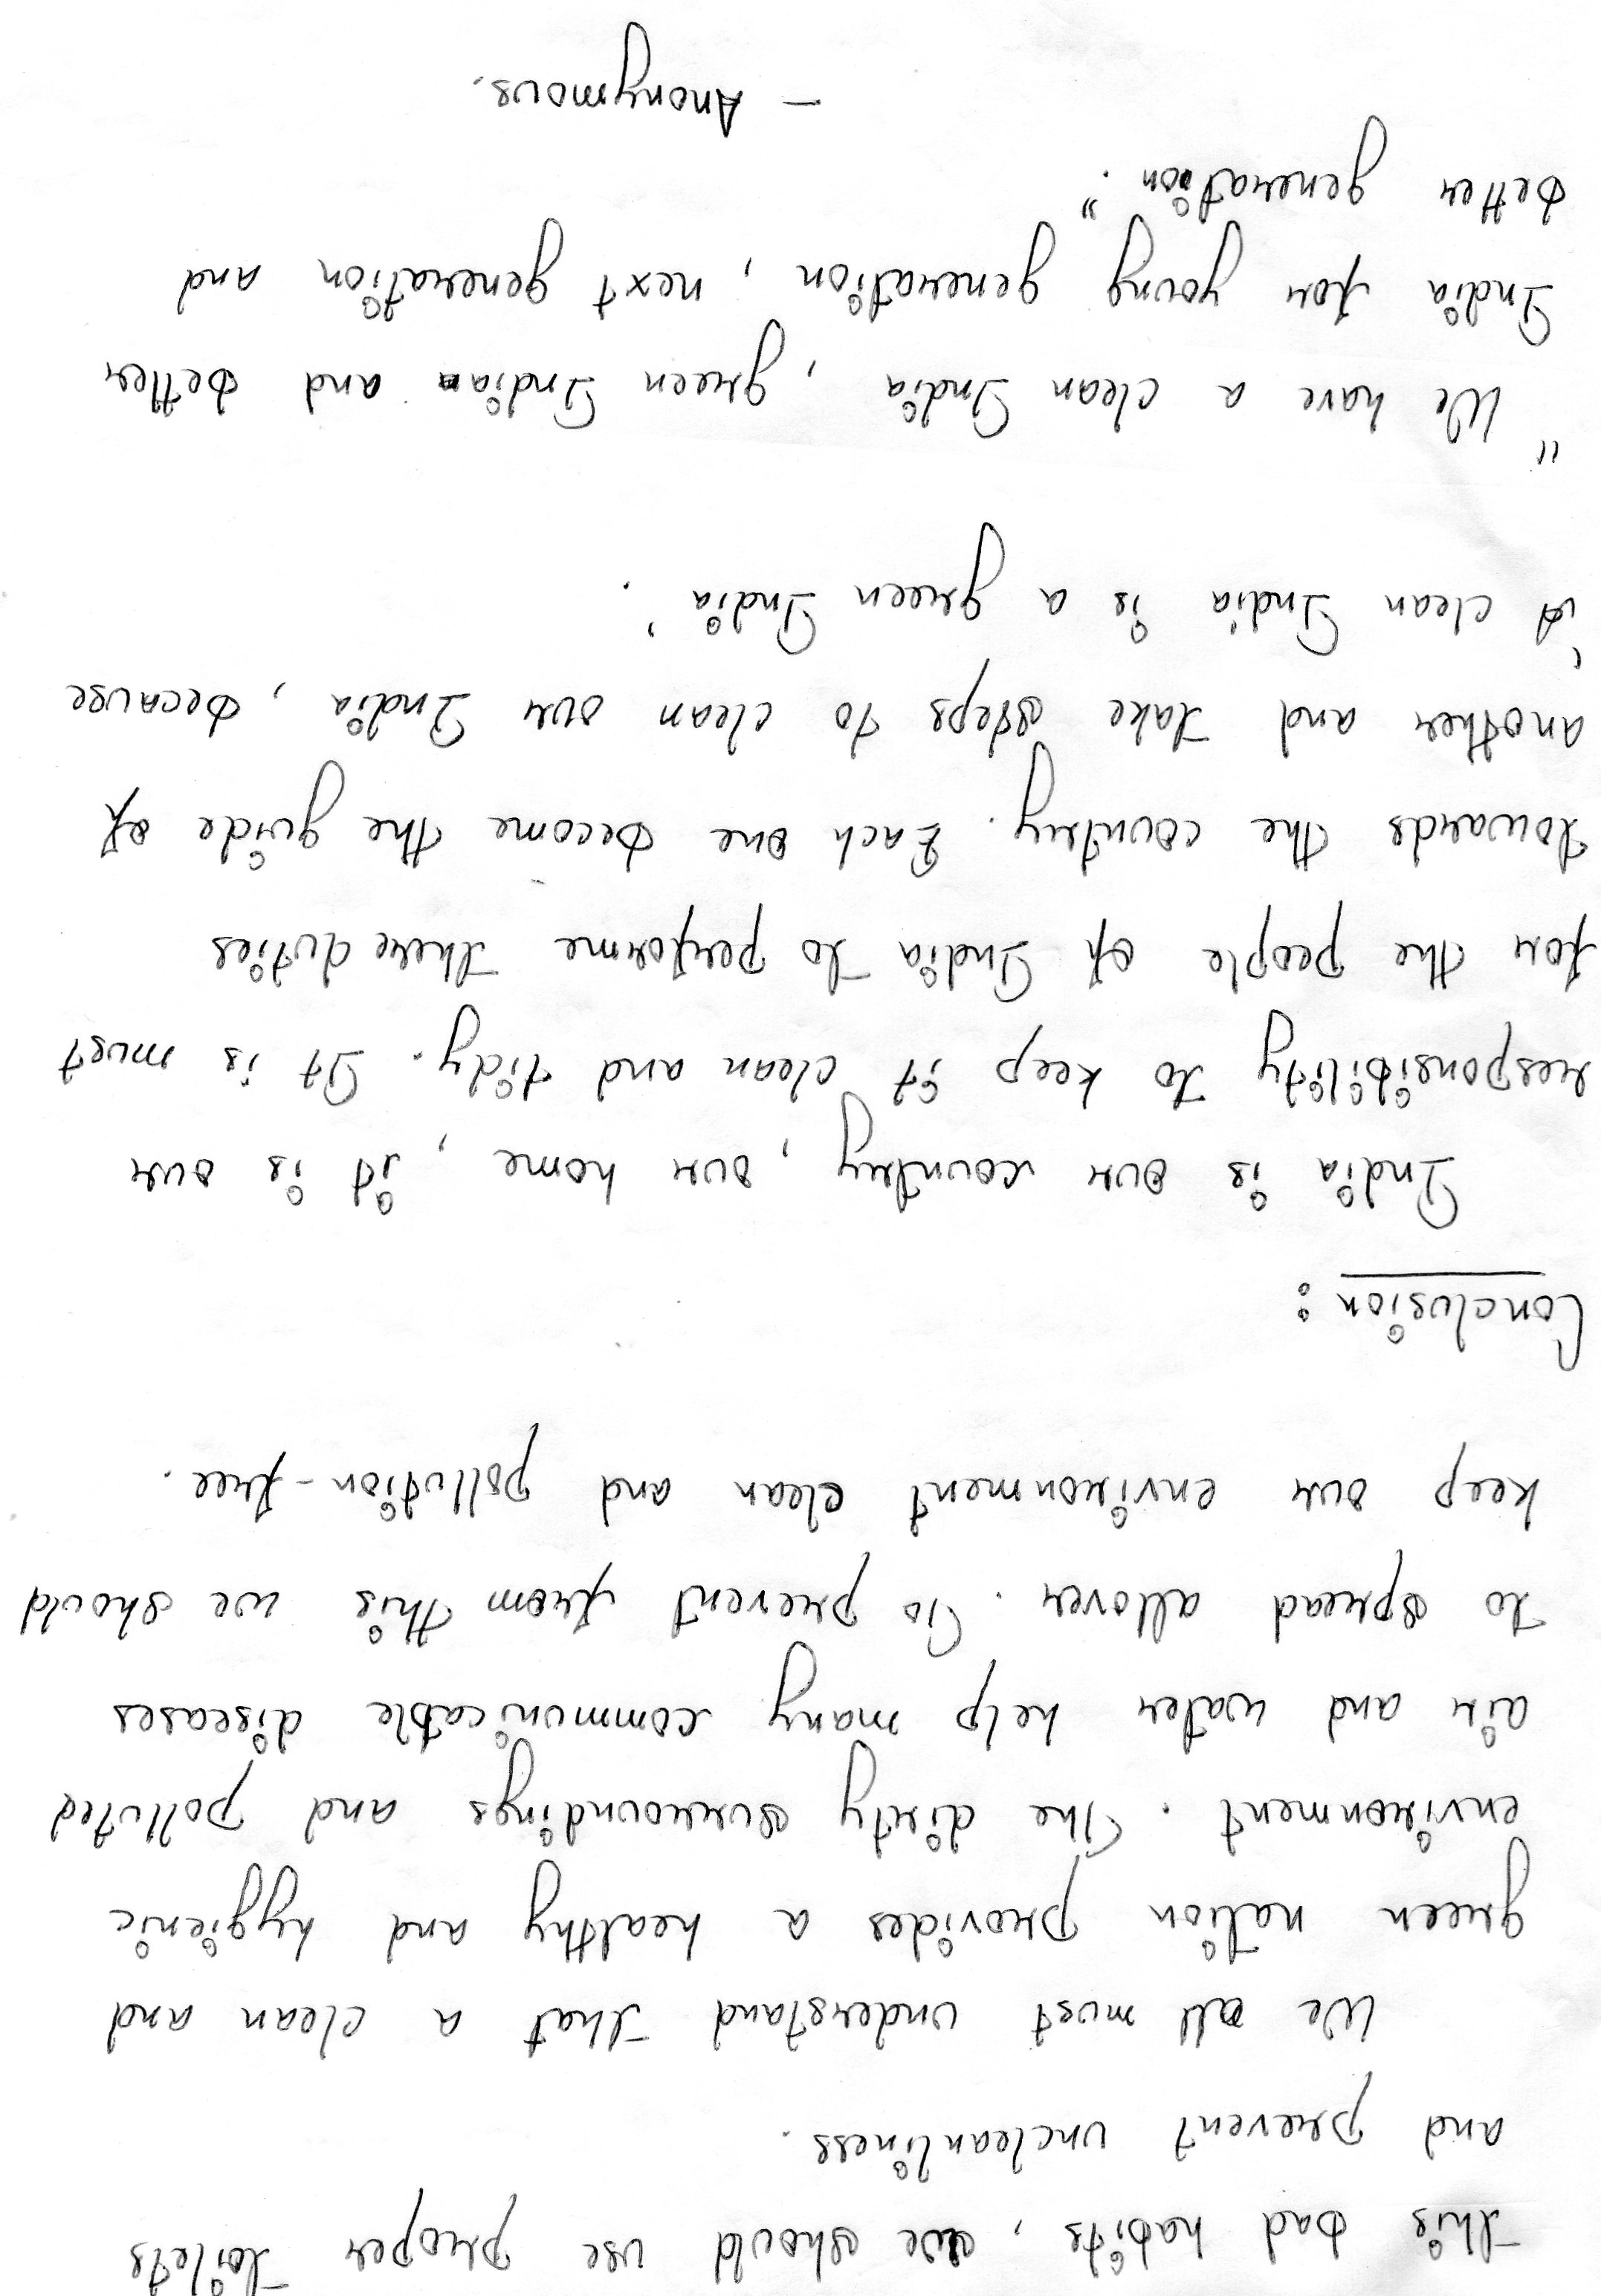 this bad habits, we should use proper toilets
and prevent uncleanliness.
We all must understand that a clean and
green nation provides a healthy and hygienic
environment. The dirty surroundings and polluted
air and water help many communicable diseases
to spread allover. To prevent from this we should
keep our environment clean and pollution-free.
Conclusion:
India is our country, our home, it is our
responsibility to keep it clean and tidy. It is must
for the people of India to performe there duties
towards the country. Each one become the guide of
another and take steps to clean our India, because
'A clean India is a green India'.
"We have a clean India, green India and better
India for young generation, next generation and
better generation."
- Anonymous.